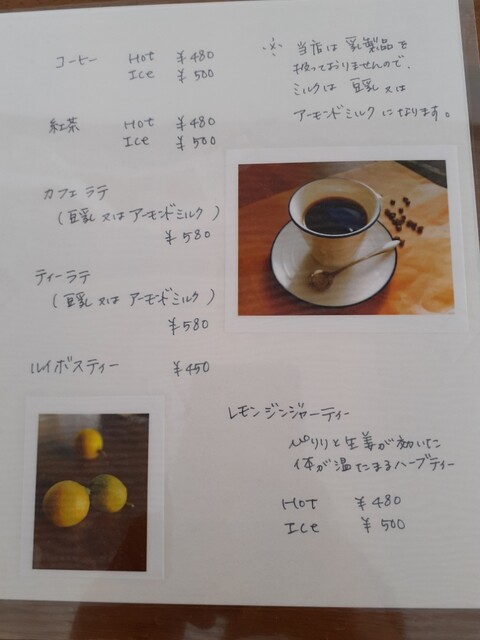 コーヒー Hot ¥480
Ice ¥500
紅茶 Hot ¥480
Ice ¥500
カフェラテ
(豆乳又はアーモンドミルク)
¥580
ティーラテ
(豆乳又はアーモンドミルク)
¥580
ルイボスティー ¥450
※ 当店は乳製品を
扱っておりませんので、
ミルクは豆乳又は
アーモンドミルクになります。
レモンジンジャーティー
ぴりりと生姜が効いた
体が温たまるハーブティー
Hot ¥480
Ice ¥500